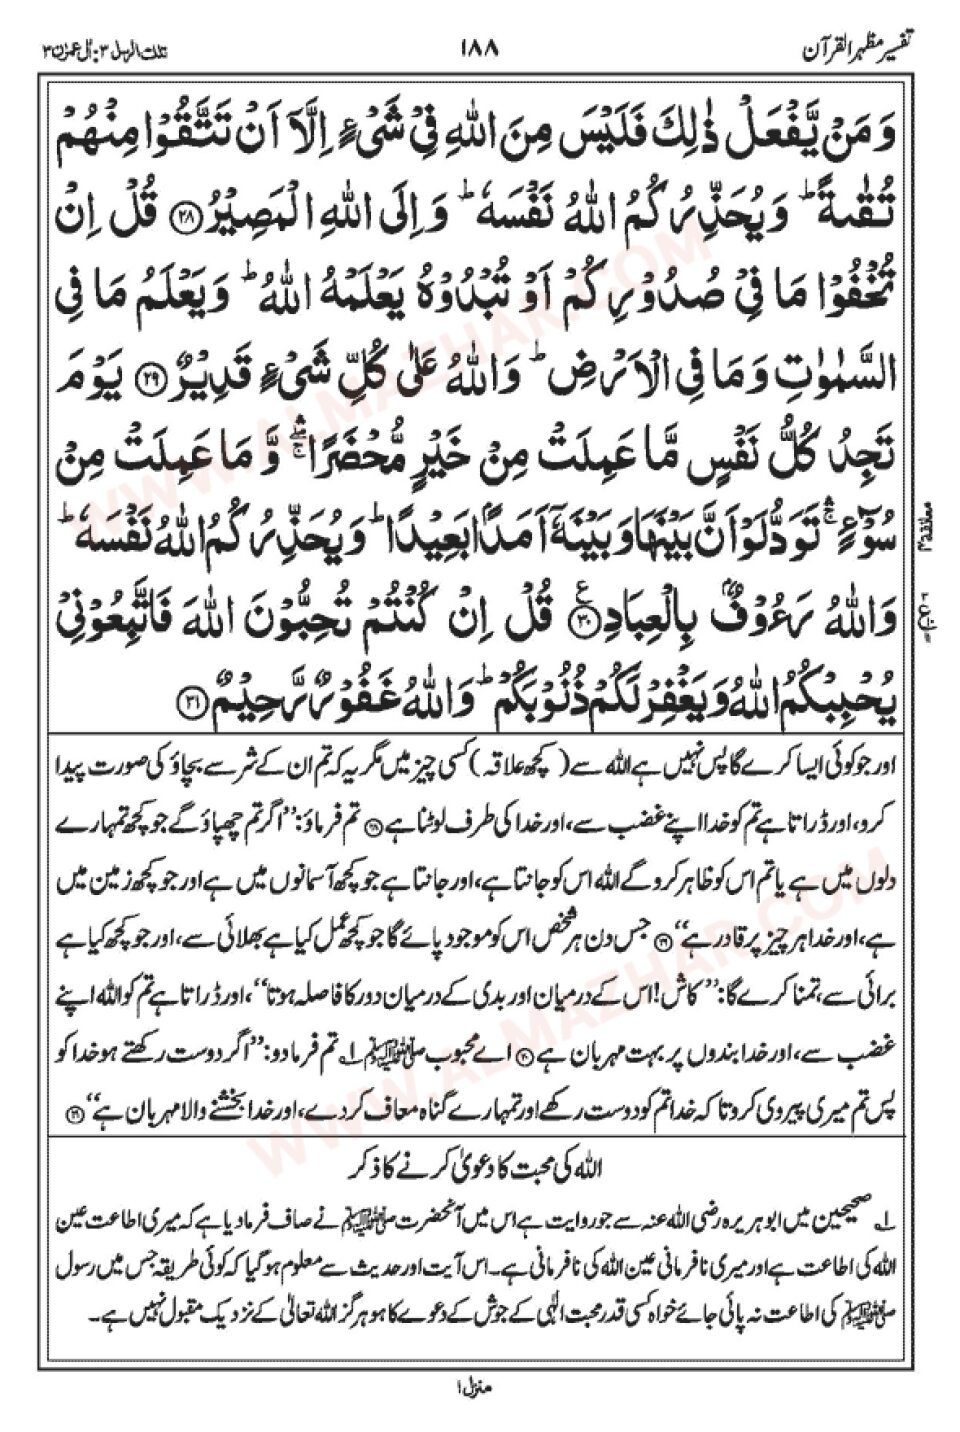 تفسیر مظہر القرآن
۱۸۸
تلک الرسل ۳: اٰل عمرٰن ۳
وَمَنْ يَّفْعَلْ ذٰلِكَ فَلَيْسَ مِنَ اللهِ فِيْ شَيْءٍ اِلَّآ اَنْ تَتَّقُوْا مِنْهُمْ
تُقٰىةً ؕ وَيُحَذِّرُكُمُ اللهُ نَفْسَهٗ ؕ وَاِلَى اللهِ الْمَصِيْرُ ﴿۲۸﴾ قُلْ اِنْ
تُخْفُوْا مَا فِيْ صُدُوْرِكُمْ اَوْ تُبْدُوْهُ يَعْلَمْهُ اللهُ ؕ وَيَعْلَمُ مَا فِي
السَّمٰوٰتِ وَمَا فِي الْاَرْضِ ؕ وَاللهُ عَلٰى كُلِّ شَيْءٍ قَدِيْرٌ ﴿۲۹﴾ يَوْمَ
تَجِدُ كُلُّ نَفْسٍ مَّا عَمِلَتْ مِنْ خَيْرٍ مُّحْضَرًا ۛۚ وَّمَا عَمِلَتْ مِنْ
سُوْٓءٍ ۛۚ تَوَدُّ لَوْ اَنَّ بَيْنَهَا وَبَيْنَهٗٓ اَمَدًۢا بَعِيْدًا ؕ وَيُحَذِّرُكُمُ اللهُ نَفْسَهٗ ؕ
وَاللهُ رَءُوْفٌۢ بِالْعِبَادِ ﴿۳۰﴾ ع قُلْ اِنْ كُنْتُمْ تُحِبُّوْنَ اللهَ فَاتَّبِعُوْنِيْ
يُحْبِبْكُمُ اللهُ وَيَغْفِرْ لَكُمْ ذُنُوْبَكُمْ ؕ وَاللهُ غَفُوْرٌ رَّحِيْمٌ ﴿۳۱﴾
اور جو کوئی ایسا کرے گا پس نہیں ہے اللہ سے (کچھ علاقہ) کسی چیز میں مگر یہ کہ تم ان کے شر سے بچاؤ کی صورت پیدا
کرو، اور ڈراتا ہے تم کو خدا اپنے غضب سے، اور خدا کی طرف لوٹنا ہے ﴿۲۸﴾ تم فرماؤ: ’’اگر تم چھپاؤ گے جو کچھ تمہارے
دلوں میں ہے یا تم اس کو ظاہر کرو گے اللہ اس کو جانتا ہے، اور جانتا ہے جو کچھ آسمانوں میں ہے اور جو کچھ زمین میں
ہے، اور خدا ہر چیز پر قادر ہے‘‘ ﴿۲۹﴾ جس دن ہر شخص اس کو موجود پائے گا جو کچھ عمل کیا ہے بھلائی سے، اور جو کچھ کیا ہے
برائی سے، تمنا کرے گا: ’’کاش! اس کے درمیان اور بدی کے درمیان دور کا فاصلہ ہوتا‘‘، اور ڈراتا ہے تم کو اللہ اپنے
غضب سے، اور خدا بندوں پر بہت مہربان ہے ﴿۳۰﴾ اے محبوب ﷺ ۱؎ تم فرما دو: ’’اگر دوست رکھتے ہو خدا کو
پس تم میری پیروی کرو تا کہ خدا تم کو دوست رکھے اور تمہارے گناہ معاف کر دے، اور خدا بخشنے والا مہربان ہے‘‘ ﴿۳۱﴾
اللہ کی محبت کا دعویٰ کرنے کا ذکر
۱؎ صحیحین میں ابو ہریرہ رضی اللہ عنہ سے جو روایت ہے اس میں آنحضرت ﷺ نے صاف فرما دیا ہے کہ میری اطاعت عین
اللہ کی اطاعت ہے اور میری نافرمانی عین اللہ کی نافرمانی ہے۔ اس آیت اور حدیث سے معلوم ہو گیا کہ کوئی طریقہ جس میں رسول
ﷺ کی اطاعت نہ پائی جائے خواہ کسی قدر محبت الٰہی کے جوش کے دعوے کا ہو ہرگز اللہ تعالیٰ کے نزدیک مقبول نہیں ہے۔
منزل ۱
WWW.ALMAZHAR.COM
WWW.ALMAZHAR.COM